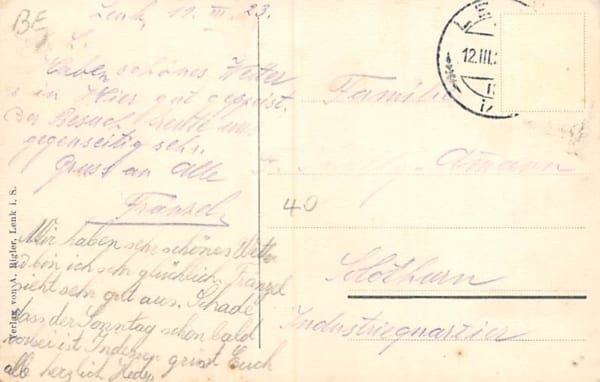 BE
Lenk, 12. III. 23.
L.
Haben schönes Wetter
in hier gut gespeist.
Der Besuch freute uns
gegenseitig sehr.
Gruss an Alle
Fränzel
Wir haben sehr schönes Wetter
bin ich sehr glücklich, Fränzel
sieht sehr gut aus. Schade
dass der Sonntag schon bald
vorbei ist. Indessen grüsst Euch
alle herzlich
Verlag von A. Rigler, Lenk i. S.
12.III.
Familie
Amann
40
Solothurn
Industriequartier